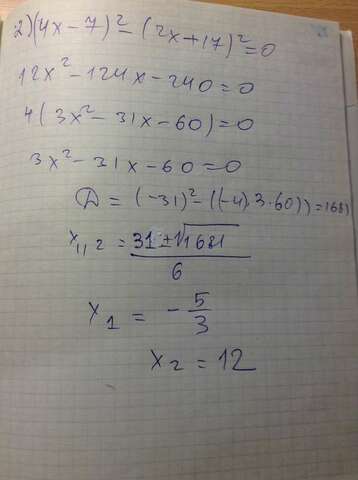 2) (4x - 7)² - (2x + 17)² = 0
12x² - 124x - 240 = 0
4(3x² - 31x - 60) = 0
3x² - 31x - 60 = 0
D = (-31)² - ((-4)·3·60)) = 1681
x₁,₂ = 31 ± √1681
6
x₁ = - 5/3
x₂ = 12